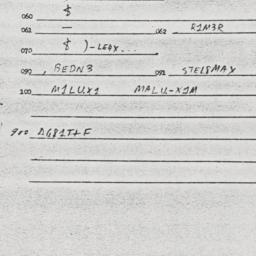 060 $
061 — 062 R1M3R
070 $ )-LEAX...
090 , BEDN3 091 STEL8MAX
100 M1LUX1 MALU-X1M
900 AG81T+F